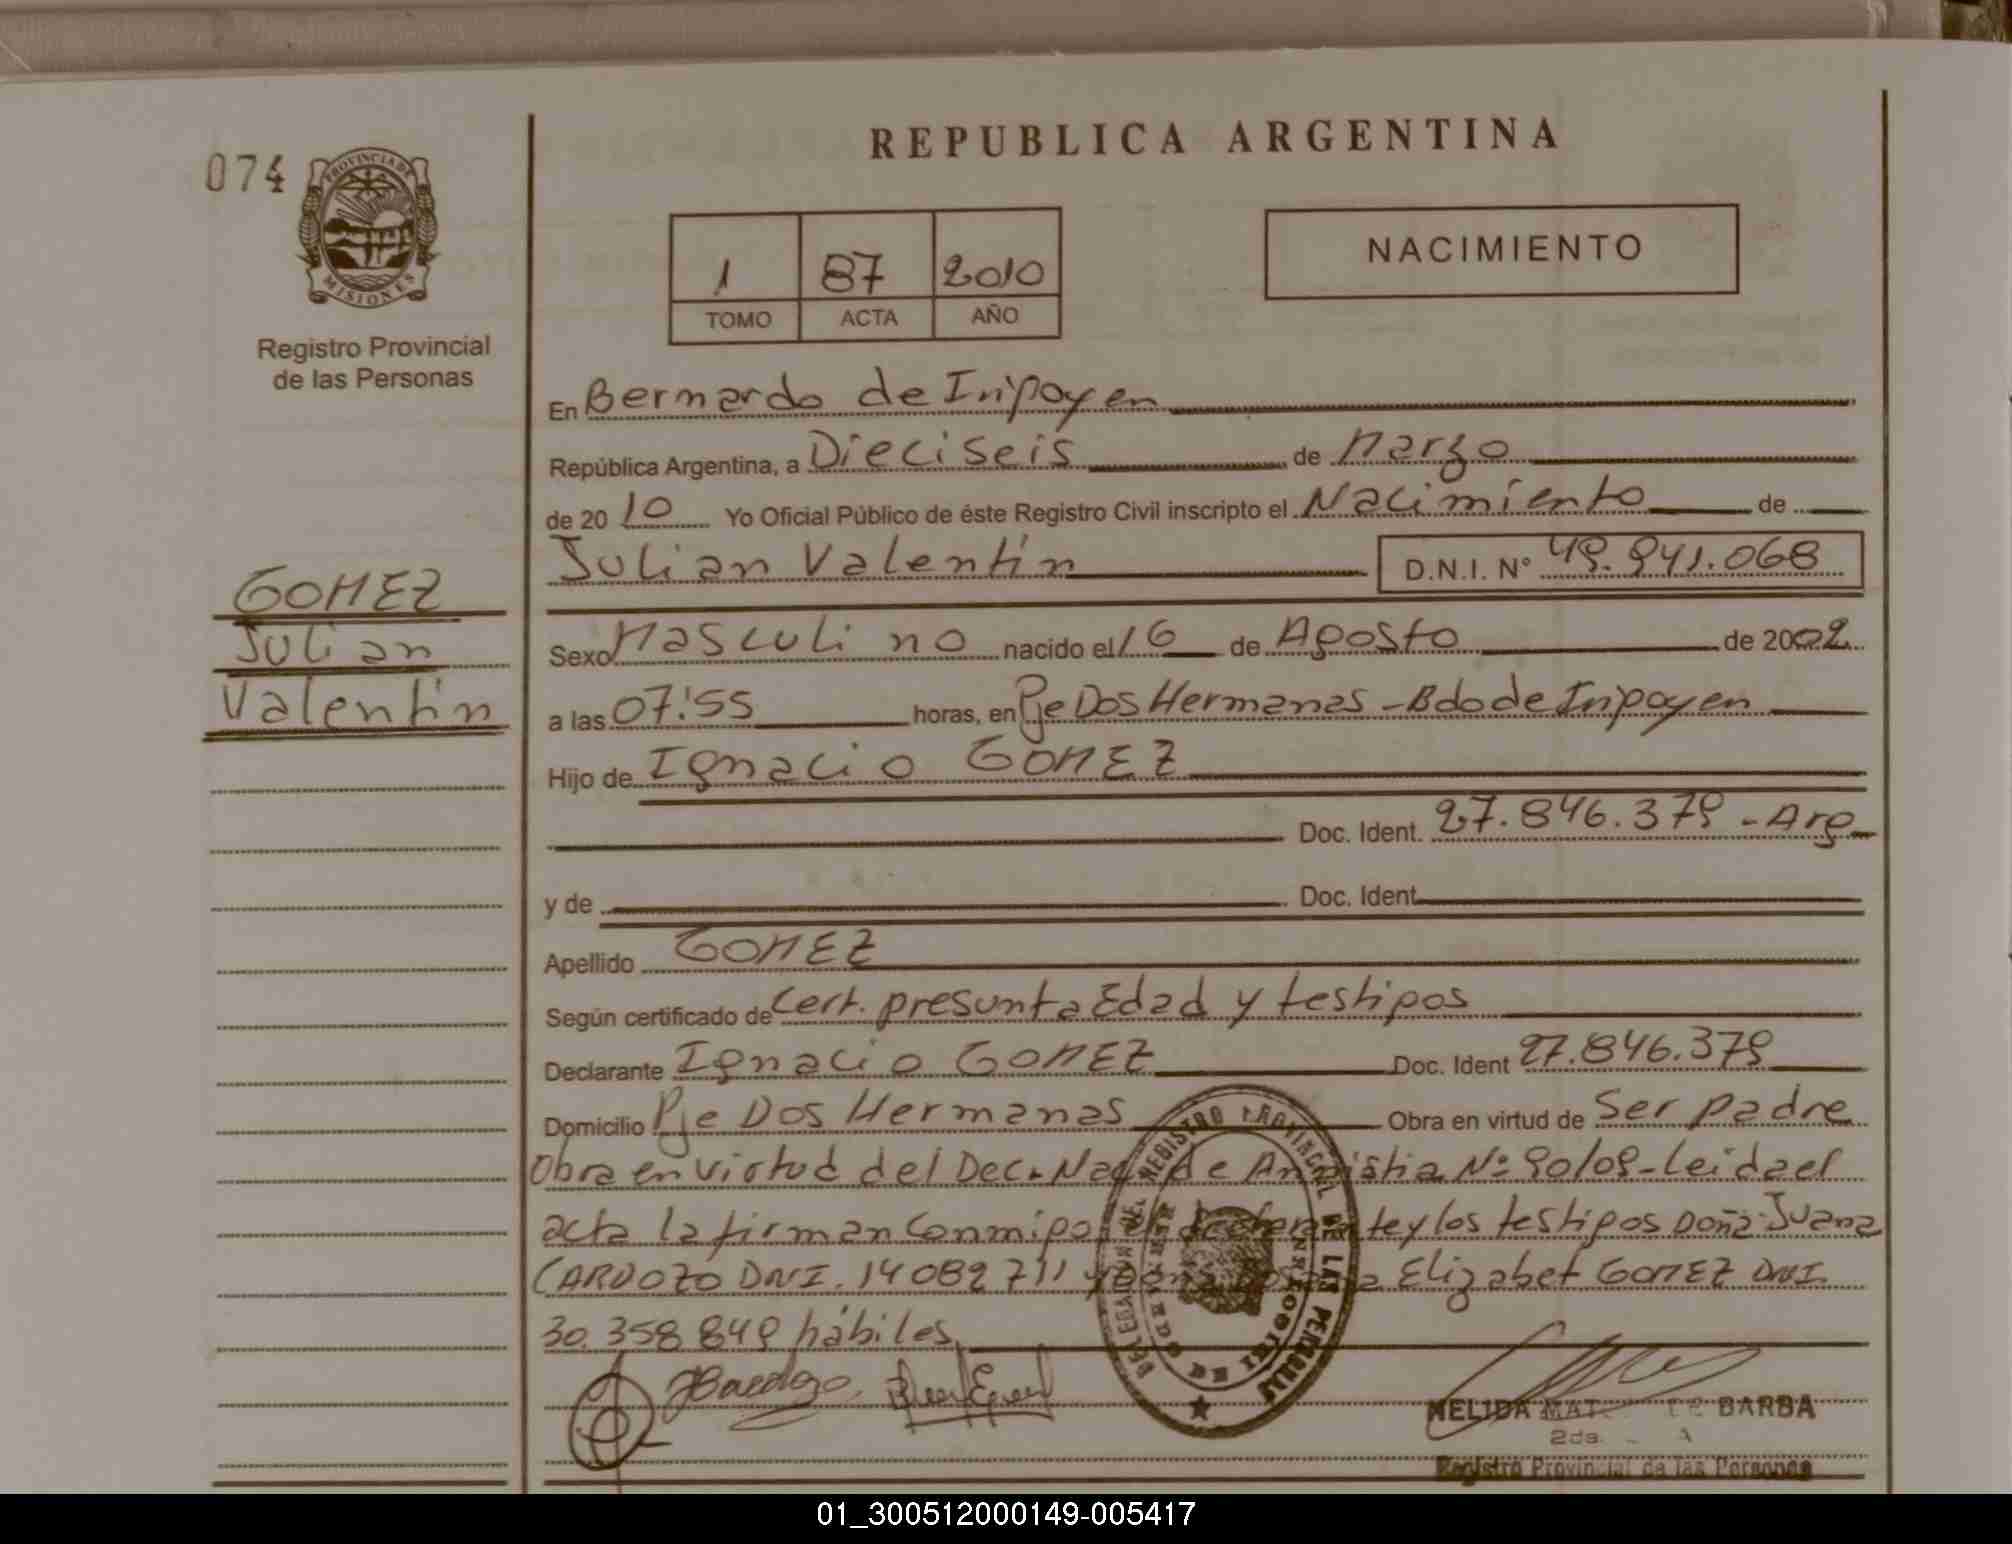 074
PROVINCIA DE
MISIONES
Registro Provincial
de las Personas
REPUBLICA ARGENTINA
1 87 2010
TOMO ACTA AÑO
NACIMIENTO
En Bernardo de Irigoyen
República Argentina, a Dieciseis de Marzo
de 2010 Yo Oficial Público de éste Registro Civil inscripto el Nacimiento de
Julian Valentín D.N.I. Nº 49.941.068
GOMEZ
Julian
Valentín
Sexo Masculino nacido el 16 de Agosto de 2002
a las 07:55 horas, en Pje Dos Hermanas - Bdo de Irigoyen
Hijo de Ignacio GOMEZ
Doc. Ident. 27.846.379 - Arg
y de Doc. Ident
Apellido GOMEZ
Según certificado de Cert. presunta Edad y testigos
Declarante Ignacio GOMEZ Doc. Ident 27.846.379
Domicilio Pje Dos Hermanas Obra en virtud de Ser padre
Obra en virtud del Dec. Nac. de Amnistia Nº 90/09 - Leida el
acta la firman conmigo el declarante y los testigos Doña Juana
CARDOZO DNI. 14082711 y Doña Elizabet GOMEZ DNI.
30.358.849 hábiles
DELEGACION DEL REGISTRO PROVINCIAL DE LAS PERSONAS
NELIDA BARBA
2da.
Registro Provincial de las Personas
01_300512000149-005417